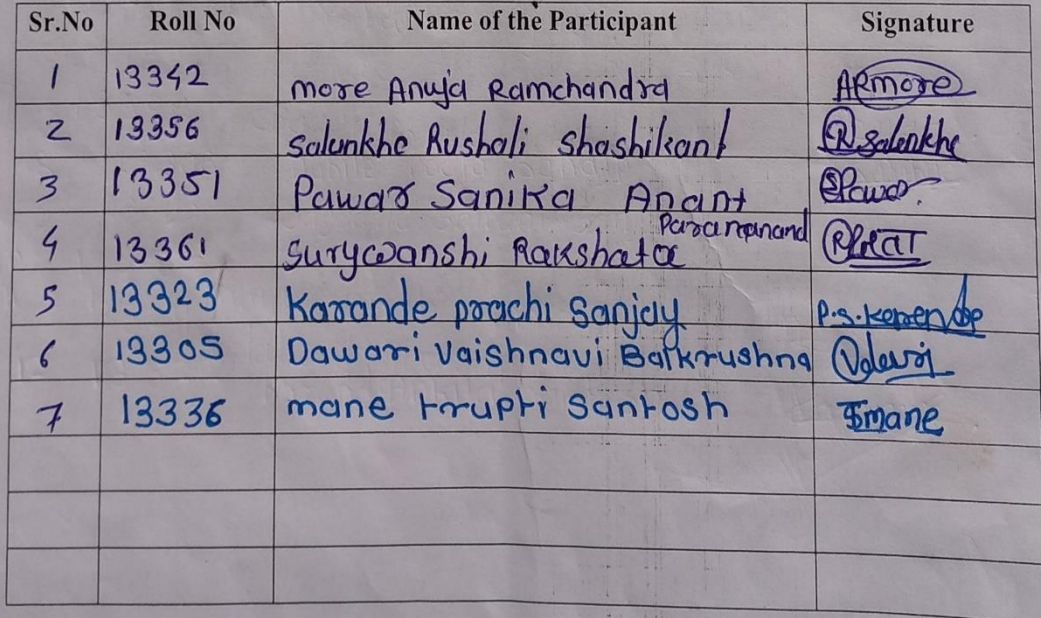 Sr.No Roll No Name of the Participant Signature
1 13342 more Anuja Ramchandra ARmore
2 13356 salunkhe Rushali Shashikant Rsalunkhe
3 13351 Pawar Sanika Anant SPawar
4 13361 Surywanshi Rakshata Paramanand
5 13323 Karande prachi Sanjay P.S.Karande
6 13305 Dawari Vaishnavi Balkrushna
7 13336 mane trupti Santosh mane